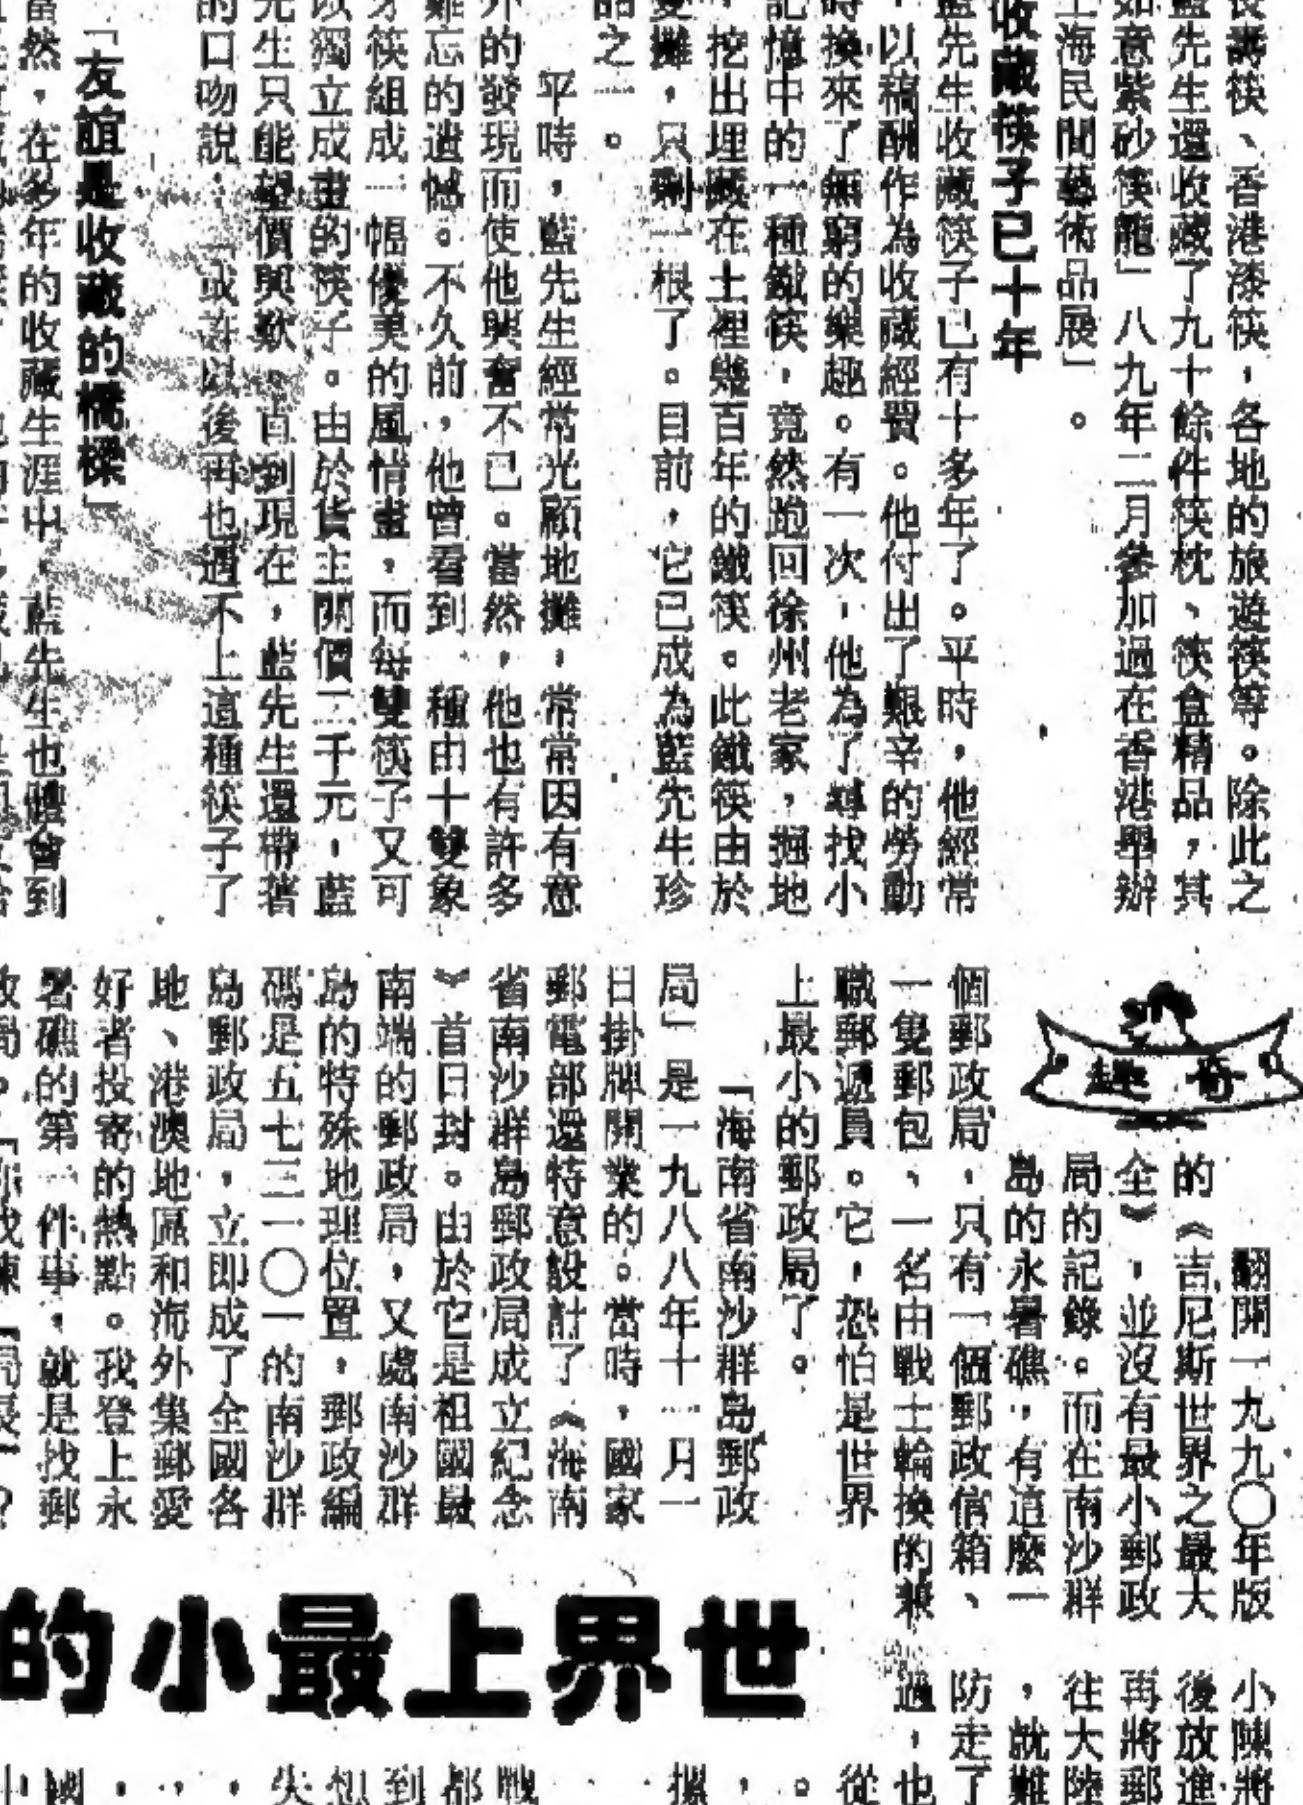 長壽筷、香港漆筷，各地的旅遊筷等。除此之
藍先生還收藏了九十餘件筷枕、筷盒精品，其
如意紫砂筷籠」八九年二月參加過在香港舉辦
上海民間藝術品展」。
收藏筷子已十年
藍先生收藏筷子已有十多年了。平時，他經常
，以稿酬作為收藏經費。他付出了艱辛的勞動
時換來了無窮的樂趣。有一次，他為了尋找小
記憶中的一種鐵筷，竟然跑回徐州老家，掘地
，挖出埋藏在土裡幾百年的鐵筷。此鐵筷由於
變攤，只剩一根了。目前，它已成為藍先生珍
品之一。
平時，藍先生經常光顧地攤，常常因有意
外的發現而使他興奮不已。當然，他也有許多
難忘的遺憾。不久前，他曾看到一種由十雙象
牙筷組成一幅優美的風情畫，而每雙筷子又可
以獨立成畫的筷子。由於貨主開價二千元，藍
先生只能望價興歎。直到現在，藍先生還帶著
的口吻說：「或許以後再也遇不上這種筷子了
「友誼是收藏的橋樑」
當然，在多年的收藏生涯中，藍先生也體會到
奇趣
翻開一九九〇年版
的《吉尼斯世界之最大
全》，並沒有最小郵政
局的記錄。而在南沙群
島的永暑礁，有這麼一
個郵政局，只有一個郵政信箱、
一隻郵包、一名由戰士輪換的兼
職郵遞員。它，恐怕是世界
上最小的郵政局了。
「海南省南沙群島郵政
局」是一九八八年十一月一
日掛牌開業的。當時，國家
郵電部還特意設計了《海南
省南沙群島郵政局成立紀念
》首日封。由於它是祖國最
南端的郵政局，又處南沙群
島的特殊地理位置，郵政編
碼是五七三一〇一的南沙群
島郵政局，立即成了全國各
地、港澳地區和海外集郵愛
好者投寄的熱點。我登上永
暑礁的第一件事，就是找郵
世界上最小的
小陳將
後放進
再將郵
往大陸
，就難
防走了
過，也
從
摞，。
戰
都
到
想
失
國